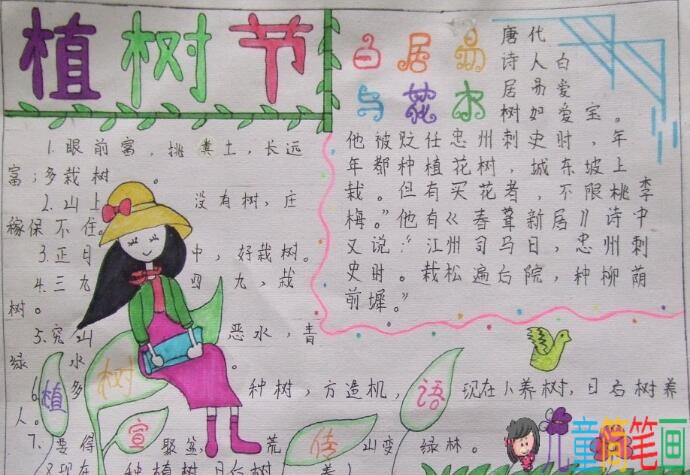 植树节
1.眼前富，挑粪土，长远
富；多栽树
2.山上没有树，庄
稼保不住。
3.正月中，好栽树。
4.三九四九，栽
树。
5.穷山恶水，青
绿水。
6.多种树，方造机，现在人养树，日后树养
人。
7.要得聚盆，荒山变绿林。
现在种植树，日后树养人
植树宣传语
白居易
与花木
唐代
诗人白
居易爱
树如爱宝。
他被贬任忠州刺史时，年
年都种植花树，城东坡上
栽。但有买花者，不限桃李
梅。”他有《春葺新居》诗中
又说：“江州司马日，忠州刺
史时。栽松遍后院，种柳荫
前墀。”
儿童简笔画